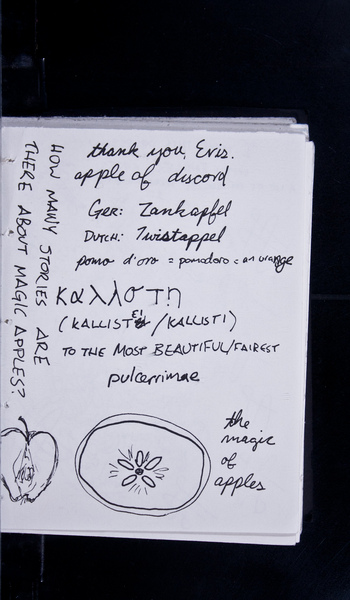 HOW MANY STORIES ARE
THERE ABOUT MAGIC APPLES?
thank you, Eris.
apple of discord
GER: Zankapfel
DUTCH: Twistappel
pomo d'oro = pomodoro = an orange
καλλστη
(KALLISTEI /KALLISTI)
TO THE MOST BEAUTIFUL/FAIREST
pulcerrimae
the
magic
of
apples